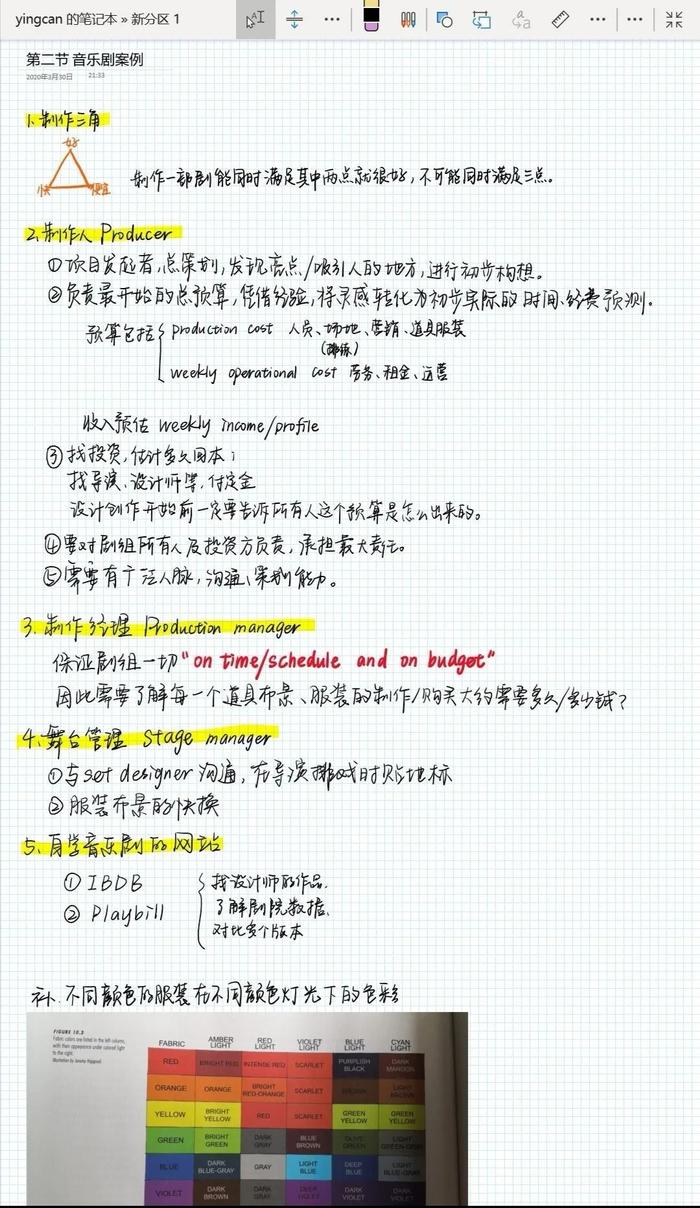 yingcan 的笔记本 » 新分区 1
第二节 音乐剧案例
2020年3月30日 21:33
1. 制作三角
好
快 便宜
制作一部剧能同时满足其中两点就很好，不可能同时满足三点。
2. 制作人 Producer
①项目发起者，总策划，发现亮点/吸引人的地方，进行初步构想。
②负责最开始的总预算，凭借经验，将灵感转化为初步实际的时间、经费预测。
预算包括 production cost 人员、场地、营销、道具服装
(排练)
weekly operational cost 劳务、租金、运营
收入预估 weekly income/profile
③找投资，估计多久回本；
找导演、设计师等，付定金
设计创作开始前一定要告诉所有人这个预算是怎么出来的。
④要对剧组所有人及投资方负责，承担最大责任。
⑤需要有广泛人脉，沟通、策划能力。
3. 制作经理 Production manager
保证剧组一切"on time/schedule and on budget"
因此需要了解每一个道具布景、服装的制作/购买大约需要多久/多少钱？
4. 舞台管理 Stage manager
①与set designer沟通，在导演排戏时贴地标
②服装布景的快换
5. 自学音乐剧的网站
① IBDB 找设计师的作品.
② Playbill 了解剧院数据.
对比多个版本
补. 不同颜色的服装在不同颜色灯光下的色彩
FIGURE 10.3
Fabric colors are listed in the left column,
with their appearance under colored light
to the right.
FABRIC AMBER LIGHT RED LIGHT VIOLET LIGHT BLUE LIGHT CYAN LIGHT
RED BRIGHT RED INTENSE RED SCARLET PURPLISH BLACK DARK MAROON
ORANGE ORANGE BRIGHT RED-ORANGE SCARLET BROWN LIGHT BROWN
YELLOW BRIGHT YELLOW RED SCARLET GREEN YELLOW GREEN YELLOW
GREEN BRIGHT GREEN DARK GRAY BLUE BROWN OLIVE GREEN LIGHT GREEN-GRAY
BLUE DARK BLUE-GRAY GRAY LIGHT BLUE DEEP BLUE LIGHT BLUE-GRAY
VIOLET DARK BROWN DARK GRAY DEEP VIOLET DARK VIOLET DARK VIOLET